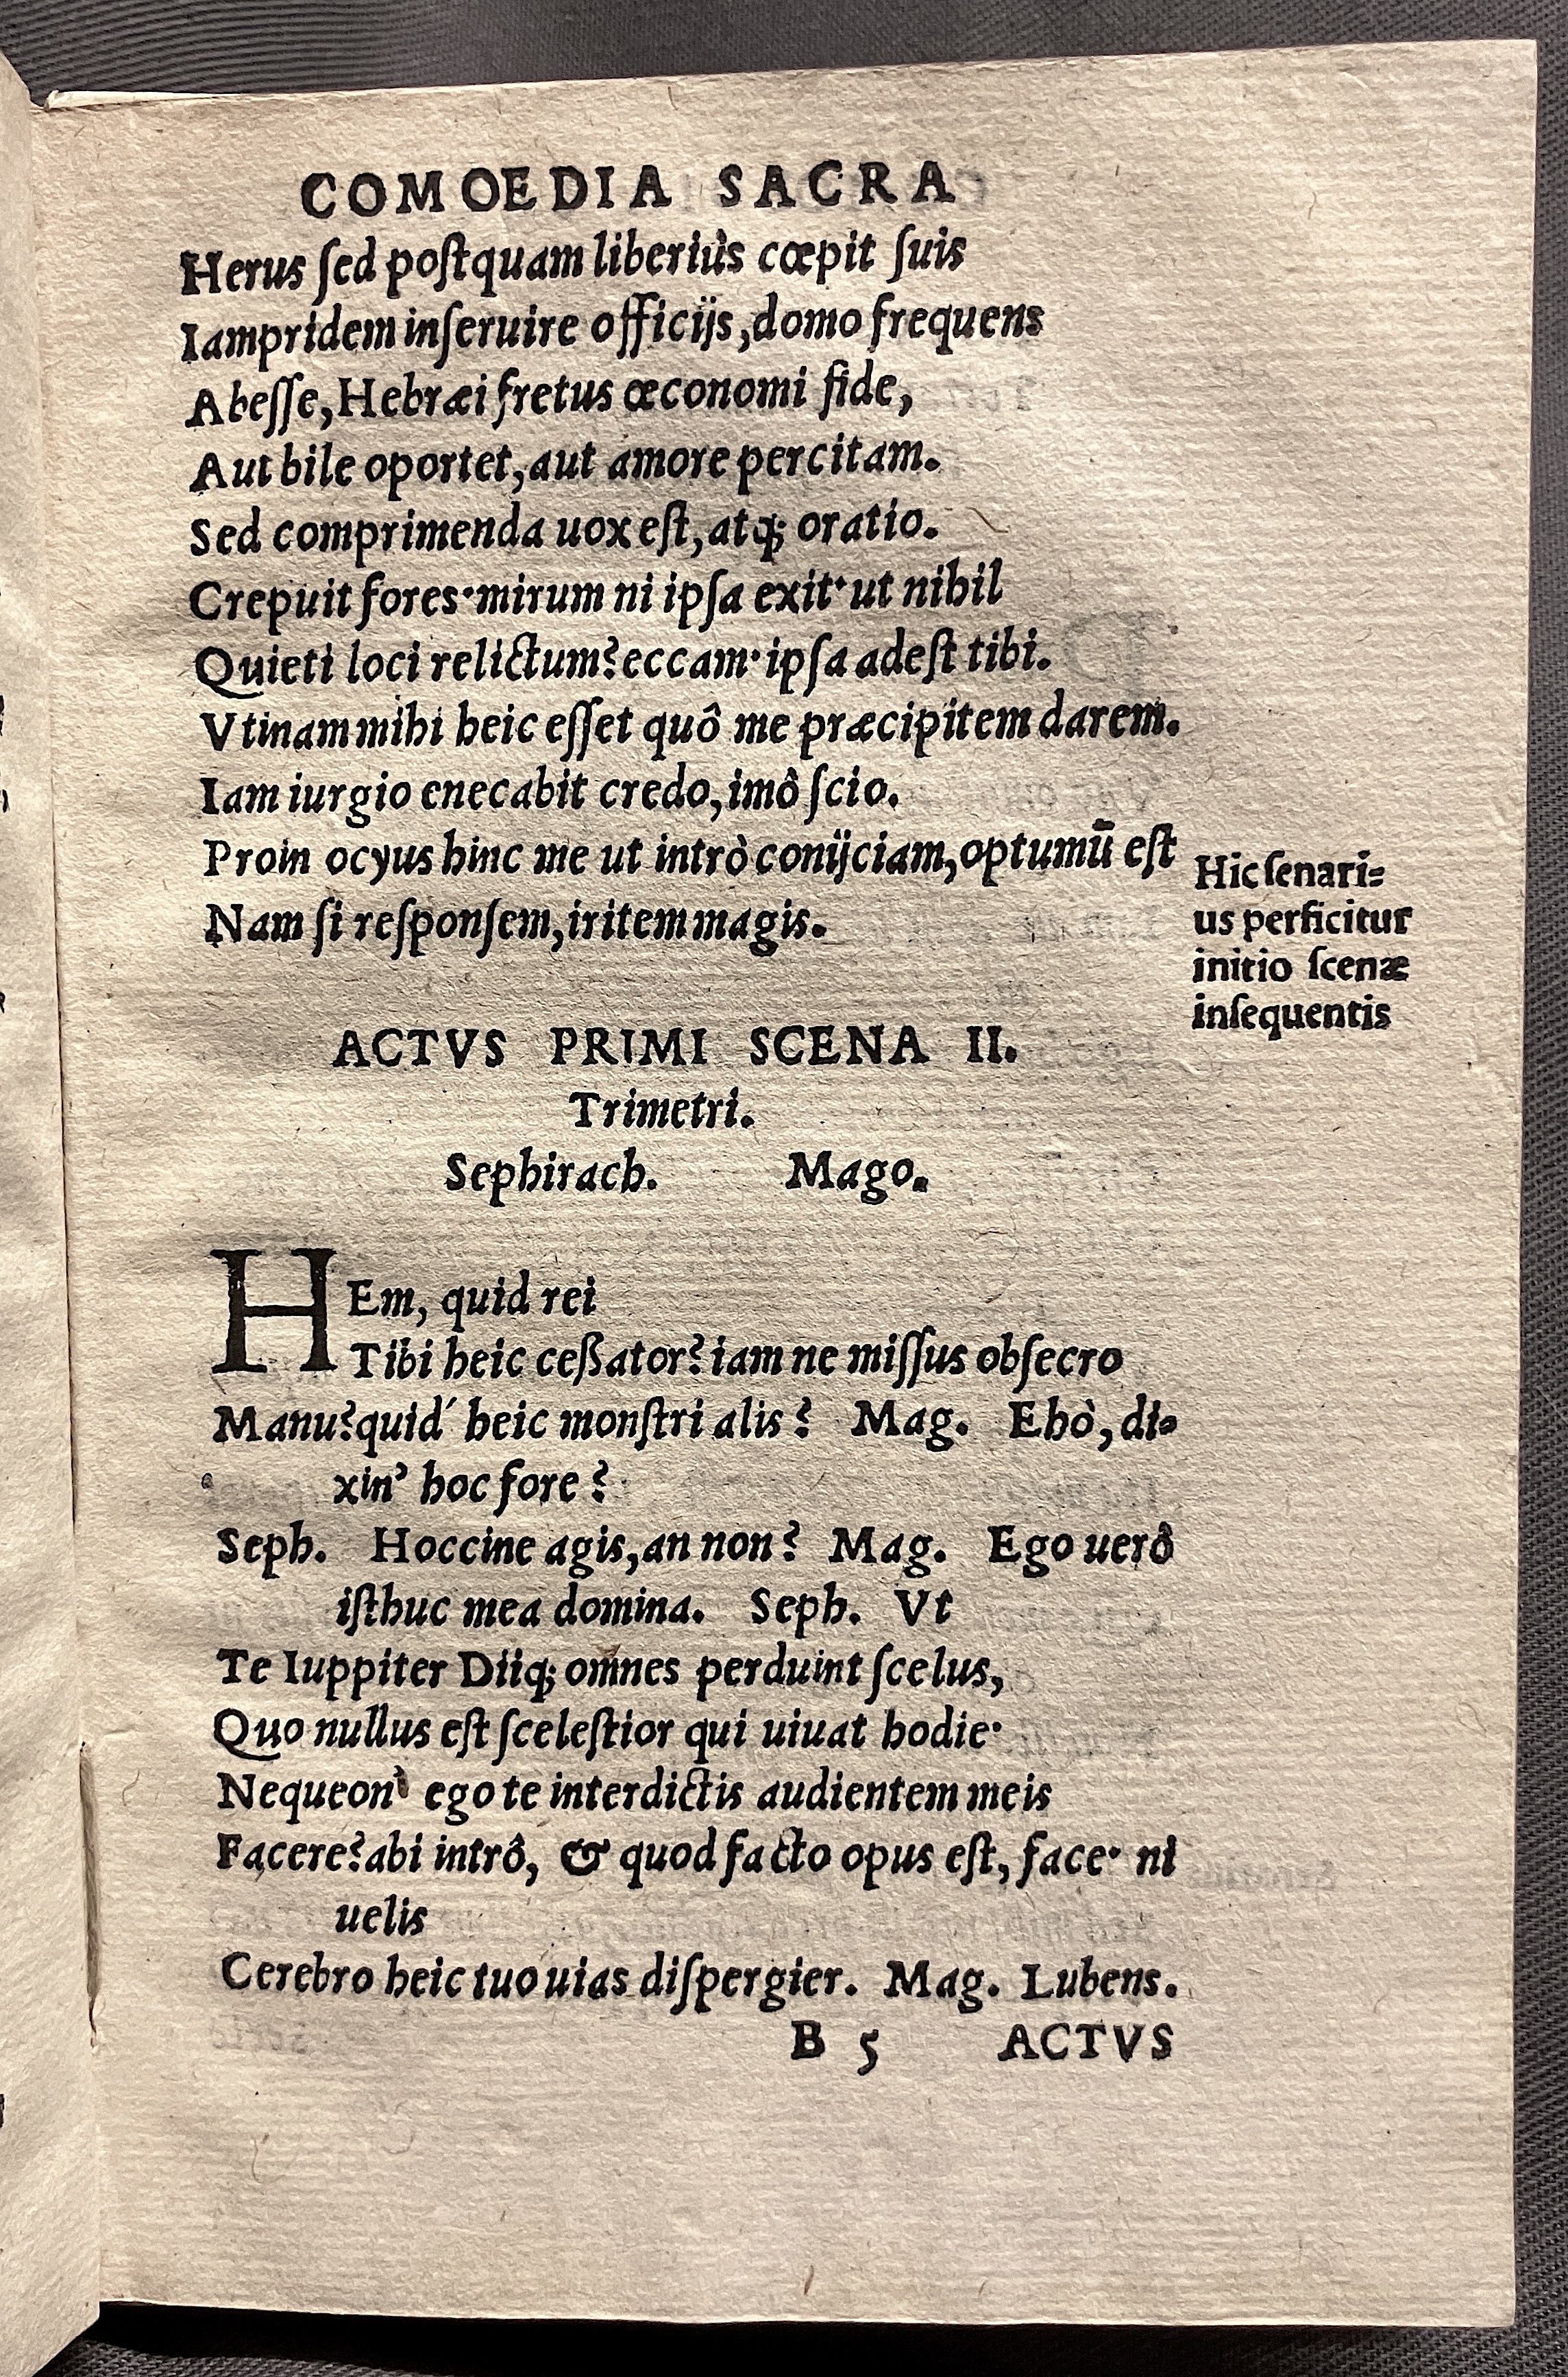 COMOEDIA SACRA
Herus ſed poſtquam liberiùs cœpit ſuis
Iampridem inſeruire officijs, domo frequens
Abeſſe, Hebræi fretus œconomi fide,
Aut bile oportet, aut amore percitam.
Sed comprimenda uox eſt, atq; oratio.
Crepuit fores·mirum ni ipſa exit·ut nihil
Quieti loci relictum? eccam·ipſa adeſt tibi.
Vtinam mihi heic eſſet quô me præcipitem darem.
Iam iurgio enecabit credo, imô ſcio.
Proin ocyus hinc me ut intrò conijciam, optumū eſt
Nam ſi reſponſem, iritem magis.
Hic ſenari=
us perficitur
initio ſcenæ
inſequentis
ACTVS PRIMI SCENA II.
Trimetri.
Sephirach. Mago.
HEm, quid rei
Tibi heic ceßator? iam ne miſſus obſecro
Manu? quid' heic monſtri alis? Mag. Ehò, di=
xin' hoc fore?
Seph. Hoccine agis, an non? Mag. Ego uerô
iſthuc mea domina. Seph. Vt
Te Iuppiter Diiq; omnes perduint ſcelus,
Quo nullus eſt ſceleſtior qui uiuat hodie·
Nequeon' ego te interdictis audientem meis
Facere? abi intrô, & quod facto opus eſt, face· ni
uelis
Cerebro heic tuo uias diſpergier. Mag. Lubens.
B 5 ACTVS